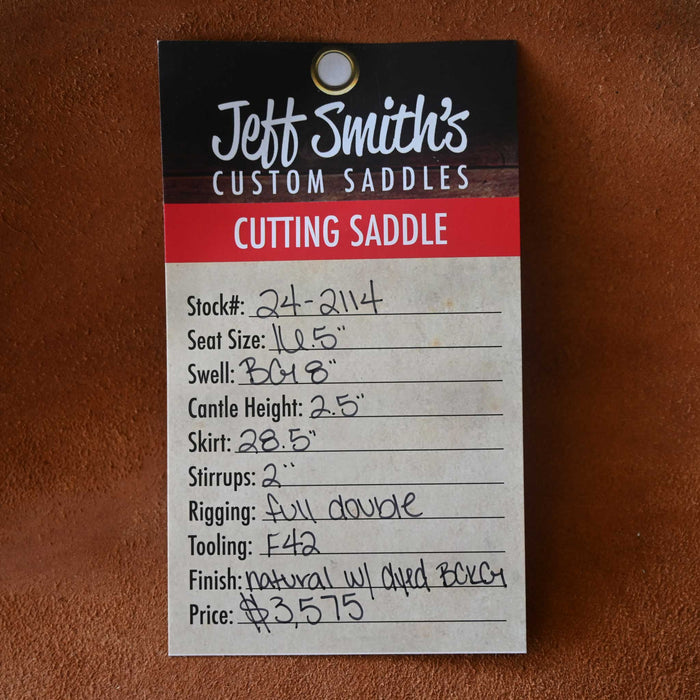 Jeff Smith's
CUSTOM SADDLES
CUTTING SADDLE
Stock#: 24-2114
Seat Size: 16.5"
Swell: BCG 8"
Cantle Height: 2.5"
Skirt: 28.5"
Stirrups: 2"
Rigging: full double
Tooling: F42
Finish: natural w/ dyed BCKG
Price: $3,575